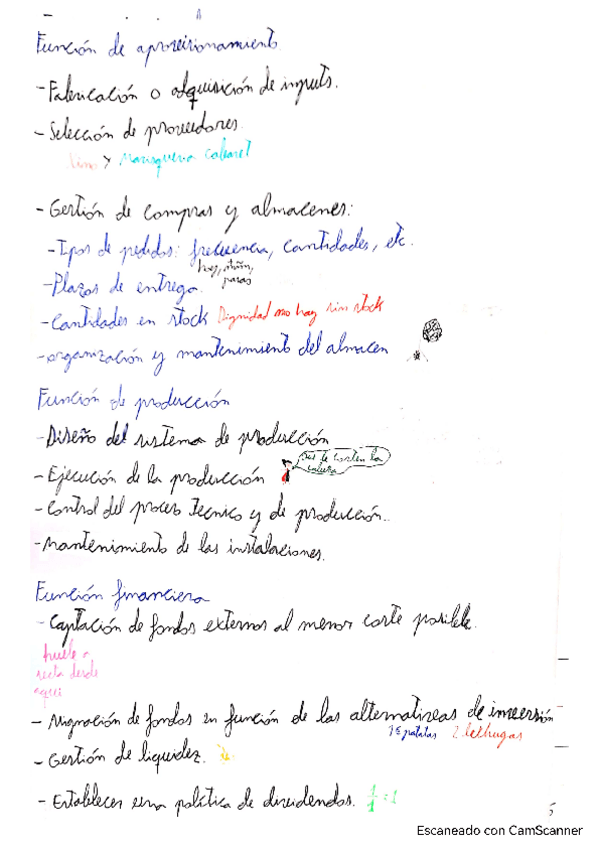 Función de aprovisionamiento
- Fabricación o adquisición de inputs.
- Selección de proveedores.
> Marisquería cabaret
- Gestión de compras y almacenes:
- Tipos de pedidos: frecuencia, cantidades, etc.
hoy, mñn, pasas
- Plazos de entrega.
- Cantidades en stock Dignidad no hay sin stock
- organización y mantenimiento del almacen
Función de producción
- Diseño del sistema de producción
que le corten la cabeza
- Ejecución de la producción
- Control del proceso tecnico y de producción.
- Mantenimiento de las instalaciones.
Función financiera
- Captación de fondos externos al menor coste posible.
huele a
desde
aquí
- Asignación de fondos en función de las alternativas de inversión
1€ patatas 2 lechugas
- Gestión de liquidez.
- Establecer una política de dividendos. 1/1 = 1
5
Escaneado con CamScanner